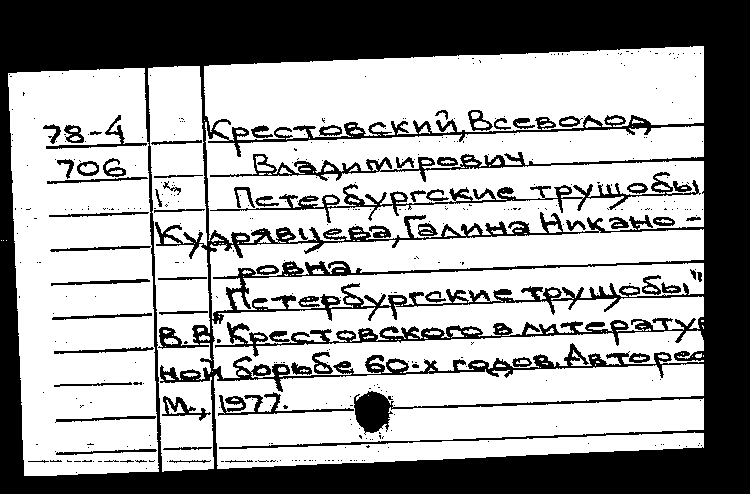 78-4 Крестовский, Всеволод
706 Владимирович.
Петербургские трущобы
Кудрявцева, Галина Никано-
ровна.
"Петербургские трущобы"
В.В. Крестовского в литератур
ной борьбе 60-х годов. Авторес
М., 1977.